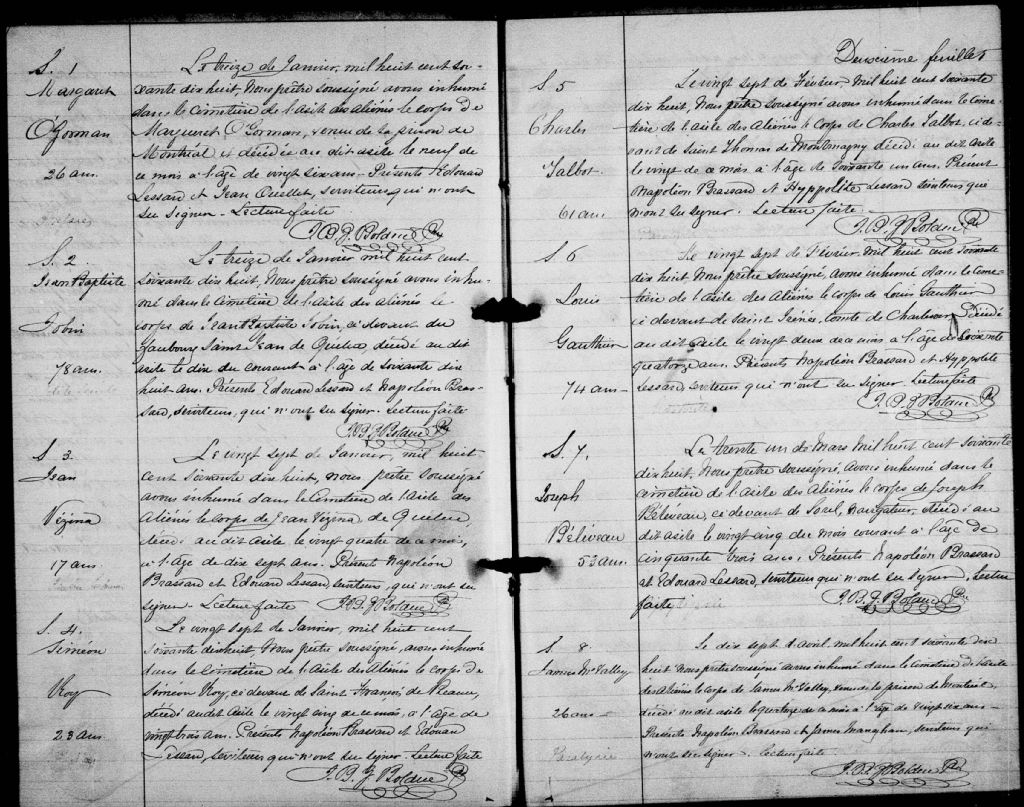 S. 1
Margaret
O'Gorman
26 ans.
Le treize de Janvier, mil huit cent soi-
xante dix huit, Nous prêtre soussigné avons inhumé
dans le cimetière de l'Asile des Aliénés le corps de
Marguret O'Gorman, venue de la prison de
Montréal et décédée au dit asile le neuf de
ce mois à l'âge de vingt six ans. Présents Edouard
Lessard et Jean Ouellet, serviteurs qui n'ont
su signer. Lecture faite
J. B. Z. Bolduc Ptre
S. 2.
Jean Baptiste
Jobin
78 ans.
Le treize de Janvier mil huit cent
soixante dix huit, Nous prêtre soussigné avons inhu-
mé dans le cimetière de l'Asile des Aliénés le
corps de Jean Baptiste Jobin, ci devant du
Faubourg Saint Jean de Québec décédé au dit
asile le dix du courant à l'âge de soixante dix
huit ans. Présents Edouard Lessard et Napoléon Bras-
sard, serviteurs, qui n'ont su signer. Lecture faite
J. B. Z. Bolduc Ptre
S. 3
Jean
Vézina
17 ans.
Le vingt sept de Janvier, mil huit
cent soixante dix huit, nous prêtre soussigné
avons inhumé dans le Cimetière de l'Asile des
Aliénés le corps de Jean Vézina de Québec,
décédé au dit Asile le vingt quatre de ce mois,
à l'âge de dix sept ans. Présents Napoléon
Brassard et Edouard Lessard serviteurs, qui n'ont su
signer. Lecture faite J. B. Z. Bolduc Ptre
S. 4.
Siméon
Roy
23 ans
Le vingt sept de Janvier, mil huit cent
soixante dix huit, Nous prêtre soussigné, avons inhumé
dans le Cimetière de l'Asile des Aliénés le corps de
Siméon Roy, ci devant de Saint François de Beauce,
décédé au dit Asile le vingt cinq de ce mois, à l'âge de
vingt trois ans. Présents Napoléon Brassard et Edouard
Lessard, serviteurs qui n'ont su signer. Lecture faite
J. B. Z. Bolduc Ptre
Deuxième feuillet
S. 5
Charles
Talbot.
61 ans
Le vingt sept de Février, mil huit cent soixante
dix huit, Nous prêtre soussigné avons inhumé dans le Cime-
tière de l'Asile des Aliénés le corps de Charles Talbot, ci de-
vant de Saint Thomas de Montmagny décédé au dit Asile
le vingt de ce mois à l'âge de soixante un ans. Présents
Napoléon Brassard et Hyppolite Lessard serviteurs que
n'ont su signer. Lecture faite
J. B. Z. Bolduc Ptre
S 6
Louis
Gauthier
74 ans
Le vingt sept de Février, mil huit cent soixante
dix huit, Nous prêtre soussigné, avons inhumé dans le Cime-
tière de l'Asile des Aliénés le corps de Louis Gauthier
ci devant de Saint Irénée, Comté de Charlevoix, décédé
au dit Asile le vingt deux de ce mois à l'âge de soixante
quatorze ans. Présents Napoléon Brassard et Hyppolite
Lessard, serviteurs qui n'ont su signer. Lecture faite
J. B. Z. Bolduc Ptre
S. 7.
Joseph
Béliveau
53 ans.
Le trente un de Mars mil huit cent soixante
dix huit, Nous prêtre soussigné, avons inhumé dans le
cimetière de l'Asile des Aliénés le corps de Joseph
Béliveau, ci devant de Sorel, navigateur, décédé au
dit asile le vingt cinq du mois courant à l'âge de
cinquante trois ans. Présents Napoléon Brassard
et Edouard Lessard, serviteurs qui n'ont su signer. Lecture
faite J. B. Z. Bolduc Ptre
S 8.
James McValley
26 ans
Le dix sept d'Avril, mil huit cent soixante dix
huit Nous prêtre soussigné avons inhumé dans le Cimetière de l'Asile
des Aliénés le corps de James McValley, venu de la prison de Montréal,
décédé au dit asile le quatorze de ce mois à l'âge de vingt six ans.
Présents Napoléon Brassard et James Monaghan, serviteurs qui
n'ont su signer. Lecture faite
J. B. Z. Bolduc Ptre